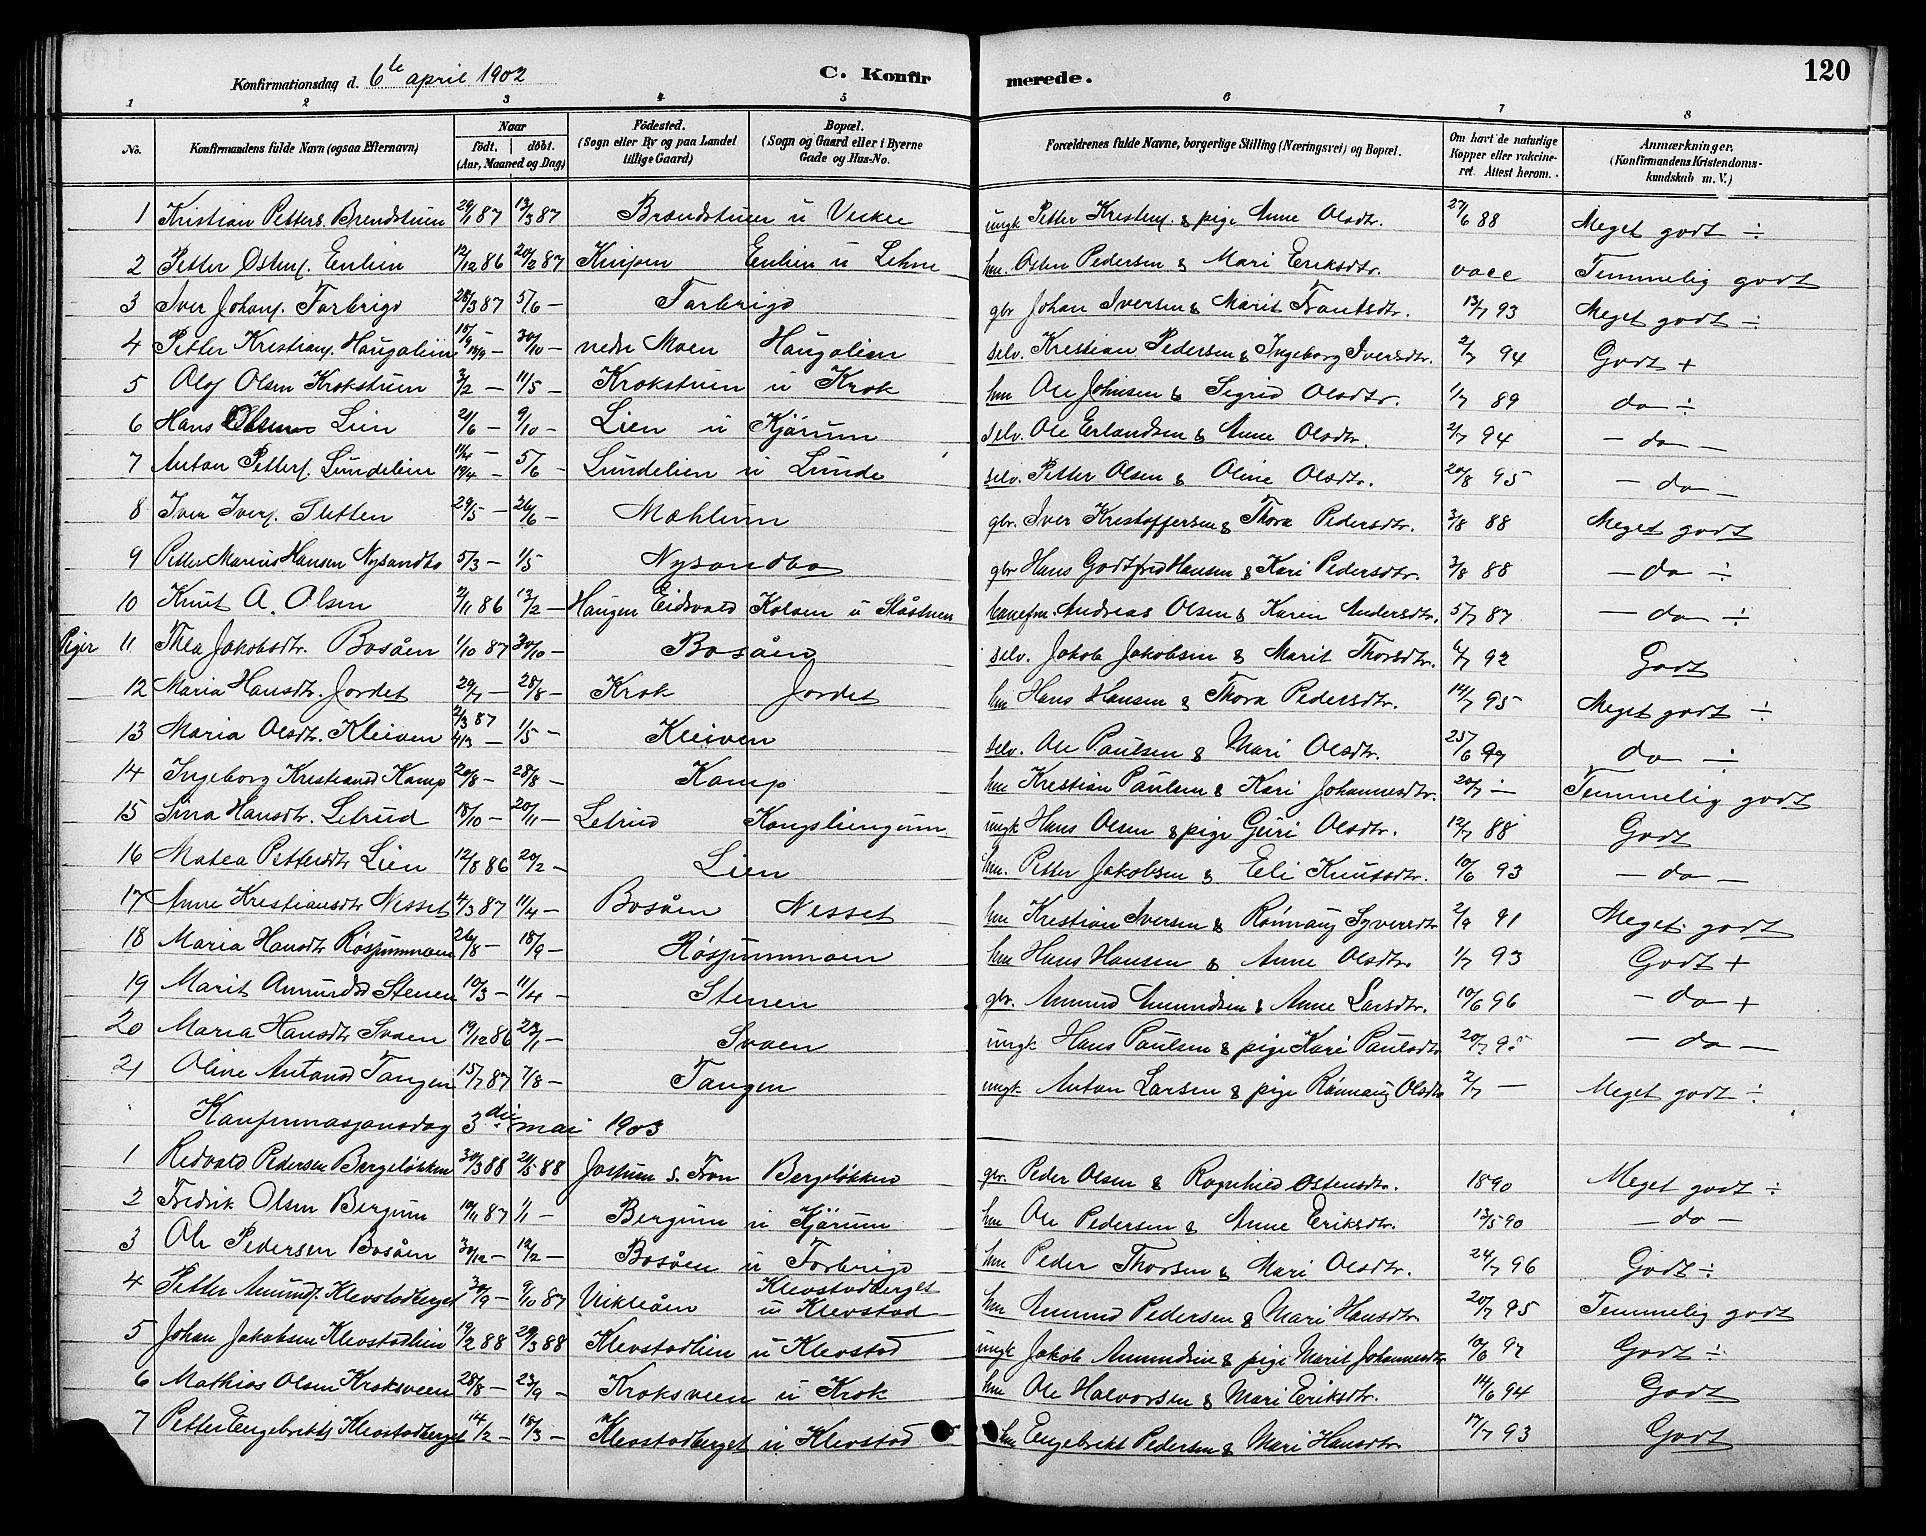 120
Konfirmationsdag d. 6te april 1902 C. Konfirmerede.
1 2 3 4 5 6 7 8
No. Konfirmandens fulde Navn (ogsaa Efternavn) Naar født. døbt. (Aar, Maaned og Dag) Fødested. (Sogn eller By og paa Landet tillige Gaard) Bopæl. (Sogn og Gaard eller i Byerne Gade og Hus-No. Forældrenes fulde Navne, borgerlige Stilling (Næringsvei) og Bopæl. Om havt de naturlige Kopper eller vakcineret. Attest herom. Anmærkninger. (Konfirmandens Kristendomskundskab m. V.)
1 Kristian Petters. Brendstuen 29/1 87 13/3 87 Brandstuen u ungk Petter Kristens. & pige Anne Olsdtr. 27/6 88 Meget godt ÷
2 Petter Ostens. Enlien 12/12 86 20/2 87 Knipen Enlien u hm. Osten Pedersen & Mari Eriksdtr. vacc Temmelig godt
3 Iver Johans. Forbrigd 28/3 87 5/6 — Forbrigd gbr Johan Iversen & Marit Frantsdtr. 13/7 93 Meget godt ÷
4 Petter Kristians. Haugalien 10/9 — 19/9 — 30/10 — nedr Moen Haugalien selv. Kristian Pedersen & Ingeborg Iversdtr. 2/7 94 Godt +
5 Olaf Olsen Krokstuen 3/2 — 11/5 — Krokstuen u Krok hm Ole Johnsen & Sigrid Olsdtr. 1/7 89 do ÷
6 Hans Olsen Lien 21/6 — 9/10 — Lien u Kjörum selv. Ole Erlandsen & Anne Olsdtr. 2/7 94 — do —
7 Anton Petters. Lundelien 11/4 — 19/4 — 5/6 — Lundelien u Lunde selv. Petter Olsen & Oline Olsdtr. 20/8 95 — do —
8 Iver Ivers. Sletten 29/5 — 26/6 — Mæhlum gbr. Iver Kristoffersen & Thora Pedersdtr. 3/8 88 Meget godt
9 Petter Marius Hansen Nysandbo 5/3 — 1/5 Nysandbo gbr Hans Godtfred Hansen & Kari Pedersdtr. 3/8 88 — do ÷
10 Knut A. Olsen 2/11 86 13/2 — Haugen Eidsvold Kolven u banefm. Andreas Olsen & Karen Andersdtr. 5/7 87 — do ÷
Piger 11 Thea Jakobsdtr. Bosåen 1/10 87 30/10 — Bosåen selv. Jakob Jakobsen & Marit Thorsdtr. 6/7 92 Godt
12 Maria Hansdtr. Jordet 29/7 — 28/8 — Krok Jordet hm Hans Hansen & Thora Pedersdtr. 14/7 95 Meget godt ÷
13 Maria Olsdtr. Kleiven 2/3 87 4/3 — 1/5 — Kleiven selv. Ole Paulsen & Mari Olsdtr. 25/6 97 do ÷
14 Ingeborg Kristiansd Kamp 20/8 — 28/8 — Kamp hm Kristian Paulsen & Kari Johannesdtr. 20/7 — Temmelig godt
15 Sina Hansdtr. Letrud 18/10 — 20/11 — Letrud Kongsliengum ungk Hans Olsen & pige Guri Olsdtr. 12/7 88 Godt
16 Matea Pettersdtr Lien 12/8 86 20/2 — Lien hm. Petter Jakobsen & Eli Knutsdtr. 10/6 93 — do —
17 Anne Kristiansdtr Nesset 4/3 87 11/4 — Bosåen Nesset hm Kristian Iversen & Rønnaug Syversdtr. 2/9 91 Meget godt
18 Maria Hansdtr Røsjummoen 26/8 — 18/9 — Røsjummoen hm Hans Hansen & Anne Olsdtr. 1/7 93 Godt +
19 Marit Amundsd Stenen 10/3 — 11/4 — Stenen gbr. Amund Amundsen & Anne Larsdtr. 10/6 96 — do +
20 Maria Hansdtr Svaen 19/12 86 23/1 — Svaen ungk Hans Paulsen & pige Kari Paulsdtr 20/7 95 — do —
21 Oline Antonsd Tangen 15/7 87 7/8 — Tangen ungk. Anton Larsen & pige Rønnaug Olsdtr 2/7 — Meget godt ÷
Konfirmasjonsdag 3die mai 1903
1 Redvald Pedersen Bergeløkken 30/3 88 21/5 88 s. Fron Bergeløkken gbr. Peder Olsen & Ragnhild Ostensdtr. 1890 Meget godt ÷
2 Fredrik Olsen Bergum 19/11 87 1/1 — Bergum u Kjörum hm Ole Pedersen & Anne Eriksdtr. 13/5 90 — do —
3 Ole Pedersen Bosåen 30/12 — 12/2 — Bosåen u Forbrigd hm Peder Thorsen & Mari Olsdtr. 24/7 96 Godt ÷
4 Petter Amunds. Klevstadberget 30/9 — 9/10 87 Vikleåen Klevstadberget u Klevstad hm Amund Pedersen & Mari Hansdtr 20/7 95 Temmelig godt
5 Johan Jakobsen Klevstadlien 19/2 88 29/3 88 Klevstadlien u Klevstad ungk Jakob Amundsen & pige Marit Johannesdtr 10/6 97 Godt ÷
6 Mathias Olsen Kroksveen 28/8 — 23/9 — Kroksveen u Krok hm Ole Halvorsen & Mari Eriksdtr. 14/6 94 Godt
7 Petter Engebrekts Klevstadberget 14/2 — 18/3 — Klevstadberget u Klevstad hm Engebrekt Pedersen & Mari Hansdtr 17/7 93 Godt